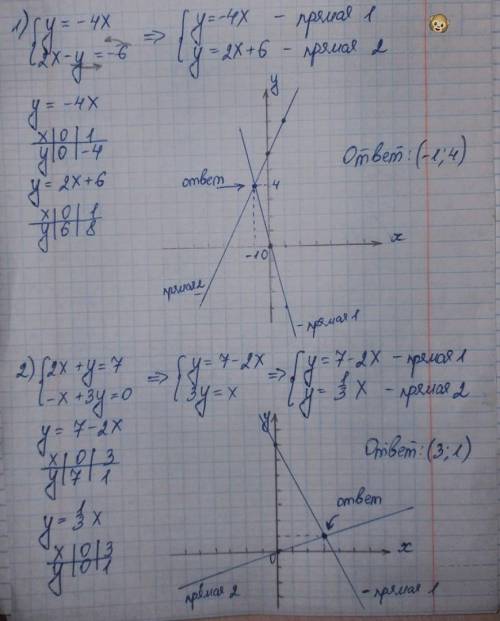 1) { y = -4x => { y = -4x - прямая 1
2x - y = -6 y = 2x + 6 - прямая 2
y = -4x
x | 0 | 1
y | 0 | -4
y = 2x + 6
x | 0 | 1
y | 6 | 8
y
ответ
4
-1 0
x
прямая 2
- прямая 1
Ответ: (-1; 4)
2) { 2x + y = 7 => { y = 7 - 2x => { y = 7 - 2x - прямая 1
-x + 3y = 0 3y = x y = 1/3 x - прямая 2
y = 7 - 2x
x | 0 | 3
y | 7 | 1
y = 1/3 x
x | 0 | 3
y | 0 | 1
y
ответ
0
x
прямая 2
- прямая 1
Ответ: (3; 1)